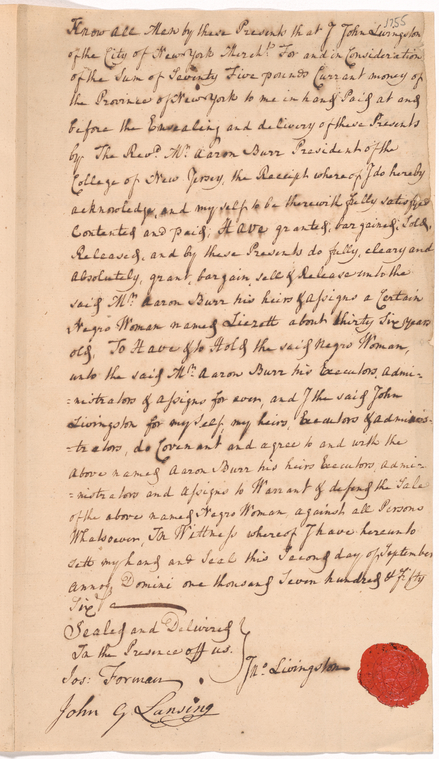 1755
Know all Men by these Presents that I John Livingston
of the City of New York Mercht. For and in Consideration
of the Sum of Seventy Five pounds Currant money of
the Province of New York to me in hand Paid at and
before the Ensealing and delivery of these Presents
by The Revd. Mr. Aaron Burr President of the
College of New Jersey, the Receipt whereof I do hereby
acknowledge, and my self to be therewith fully satisfyed
Contented and paid, Have granted, bargained, Sold,
Released, and by these Presents do fully, cleary and
absolutely, grant, bargain, sell & Release unto the
said Mr. Aaron Burr his heirs & assigns a Certain
Negro Woman named about thirty Six years
old, To Have & to Hold the said Negro Woman,
unto the said Mr. Aaron Burr his Executors, admi-
=nistrators & assigns for ever, and I the said John
Livingston for my Self, my heirs, Executors & adminis-
-trators, do Covenant and agree to and with the
above named Aaron Burr his heirs Executors, admi-
=nistrators and assigns to Warrant & defend the Sale
of the above named Negro Woman, against all Persons
Whatsoever, In Wittness whereof I have hereunto
sett my hand and Seal this Second day of September
Annoq Domini one thousand Seven hundred & Fifty
Six
Sealed and Delivered
In the Presence off us.
Jos: Forman
Jno. Livingston
John G. Lansing